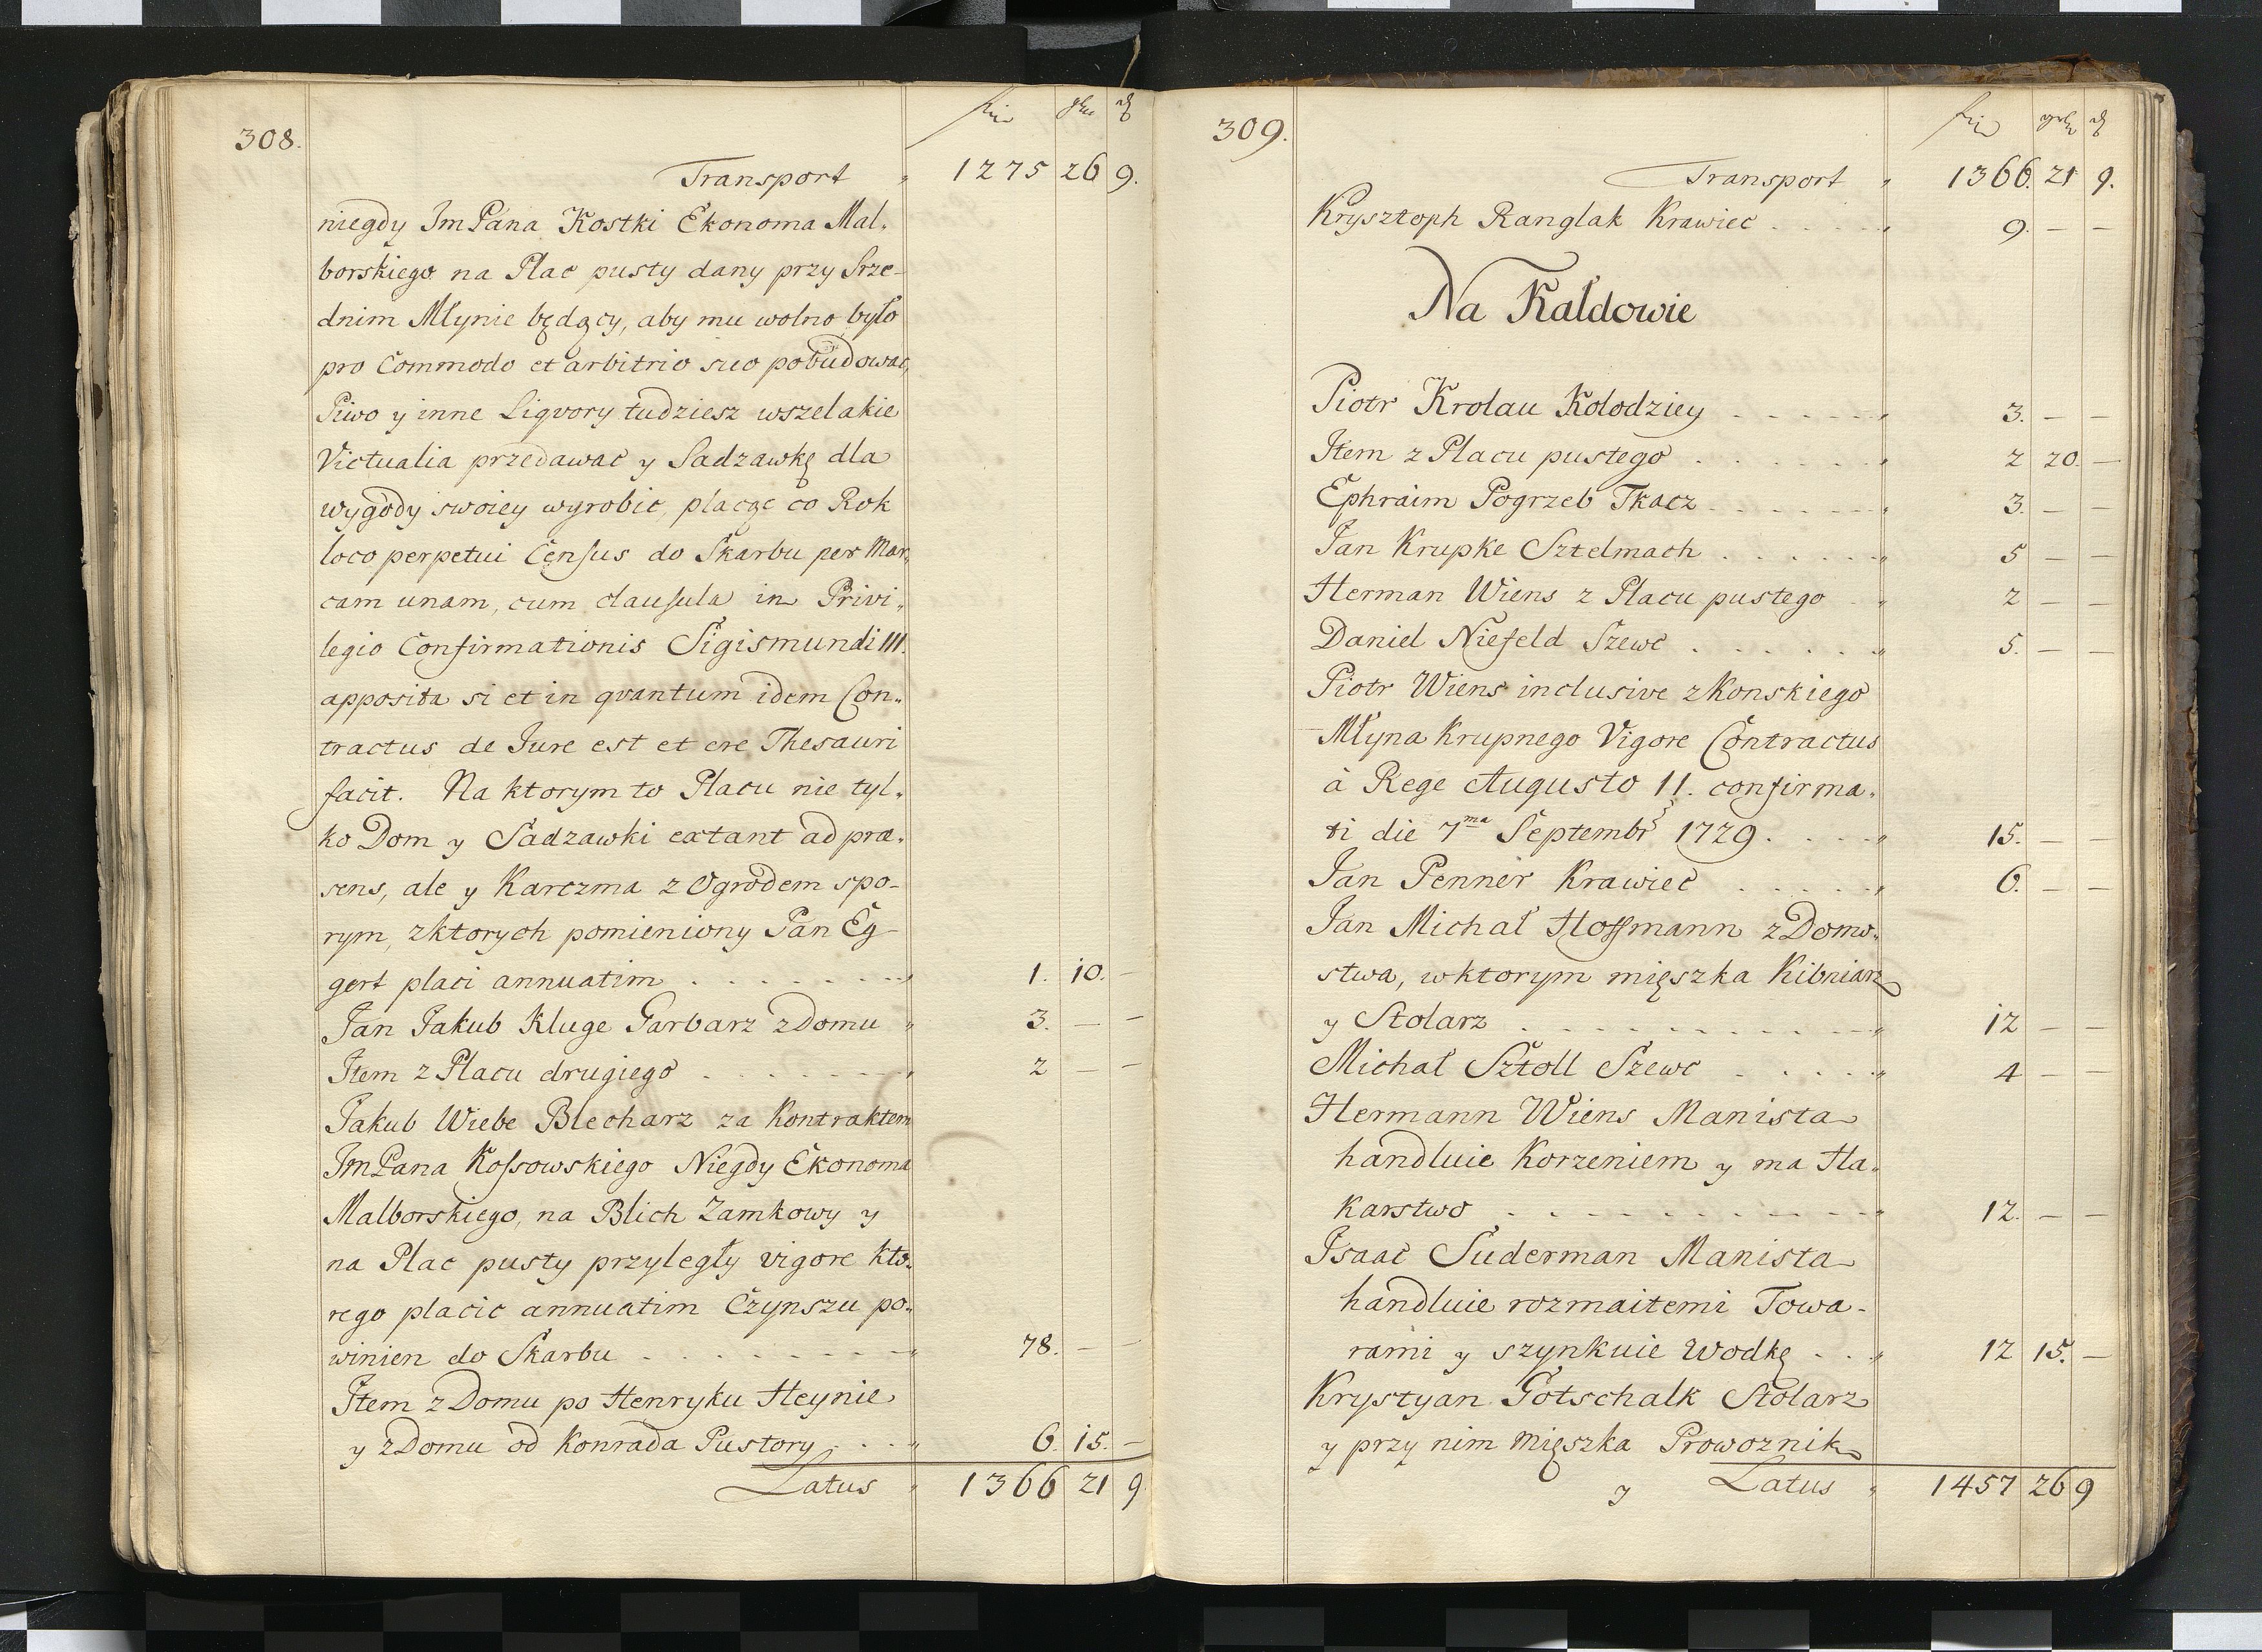 308.
Transport " 1275 26 9.
niegdy JmPana Kostki Ekonoma Mal„
borskiego na Plac pusty dany przy Srze-
dnim Młynie będący, aby mu wolno było
pro Commodo et arbitrio suo pobudowac,
Piwo y inne Liqvory tudziesz wszelakie
Victualia przedawac y Sadzawkę dla
wygody swoiey wyrobic, placąc co Rok
loco perpetui Census do Skarbu per Mar„
cam unam, cum clausula in Privi„
legio Confirmationis Sigismundi III.
apposita si et in qvantum idem Con„
tractus de Jure est et ere Thesauri
facit. Na ktorym to Placu nie tyl„
ko Dom y Sadzawki extant ad præ„
sens, ale y Karczma z Ogrodem spo-
rym, zktorych pomieniony Pan Eg-
gert placi annuatim . . . . . . . " 1. 10. —
Jan Jakub Kluge Garbarz zDomu " 3. — —
Item z Placu drugiego . . . . . . . " 2 — —
Jakub Wiebe Blecharz za Kontraktem
JmPana Kossowskiego Niegdy Ekonoma
Malborskiego, na Blich Zamkowy y
na Plac pusty przyległy vigore kto„
rego placic annuatim Czynszu po„
winien do Skarbu . . . . . . . . " 78. — —
Item z Domu po Henryku Heynie
y zDomu od Konrada Pustory . . . " 6. 15. —
Latus " 1366 21 9
309.
Transport " 1366. 21 9.
Krysztoph Ranglak Krawiec . . . . " 9. — —
Na Kałdowie
Piotr Krolau Kolodziey . . . . . " 3. — —
Item z Placu pustego . . . . . . " 2 20. —
Ephraim Pogrzeb Tkacz . . . . . . " 3. — —
Jan Krupke Sztelmach . . . . . . " 5 — —
Herman Wiens z Placu pustego . " 2 — —
Daniel Niefeld Szewc . . . . . . " 5. — —
Piotr Wiens inclusive zKonskiego
Młyna Krupnego Vigore Contractus
à Rege Augusto II. confirma„
ti die 7ma Septembr 1729. . . . . " 15. — —
Jan Penner Krawiec . . . . . " 6. — —
Jan Michał Hoffmann zDomo„
stwa, wktorym mięszka Kibniarz
y Stolarz . . . . . . . . . . . " 12 — —
Michał Sztoll Szewc . . . . . " 4 — —
Hermann Wiens Manista
handluie Korzeniem y ma Ha„
karstwo . . . . . . . . . . . " 12. — —
Isaac Suderman Manista
handluie rozmaitemi Towa-
rami y szynkuie Wodkę . . . " 12 15. —
Krystyan Gotschalk Stolarz
y przy nim mięszka Prowoznik
y Latus " 1457 26 9